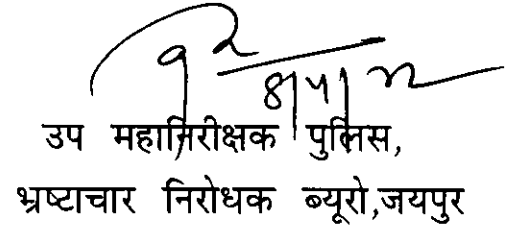 उप महानिरीक्षक पुलिस,
भ्रष्टाचार निरोधक ब्यूरो,जयपुर